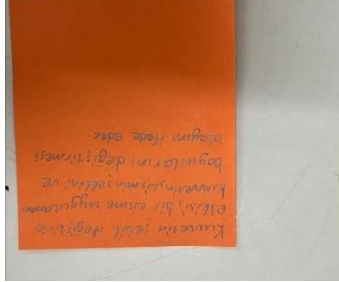 Kuvvetin şekil değiştirici
etkisi, bir cisme uygulanan
kuvvetin, cismin şeklini ve
boyutlarını değiştirmesi
olayını ifade eder